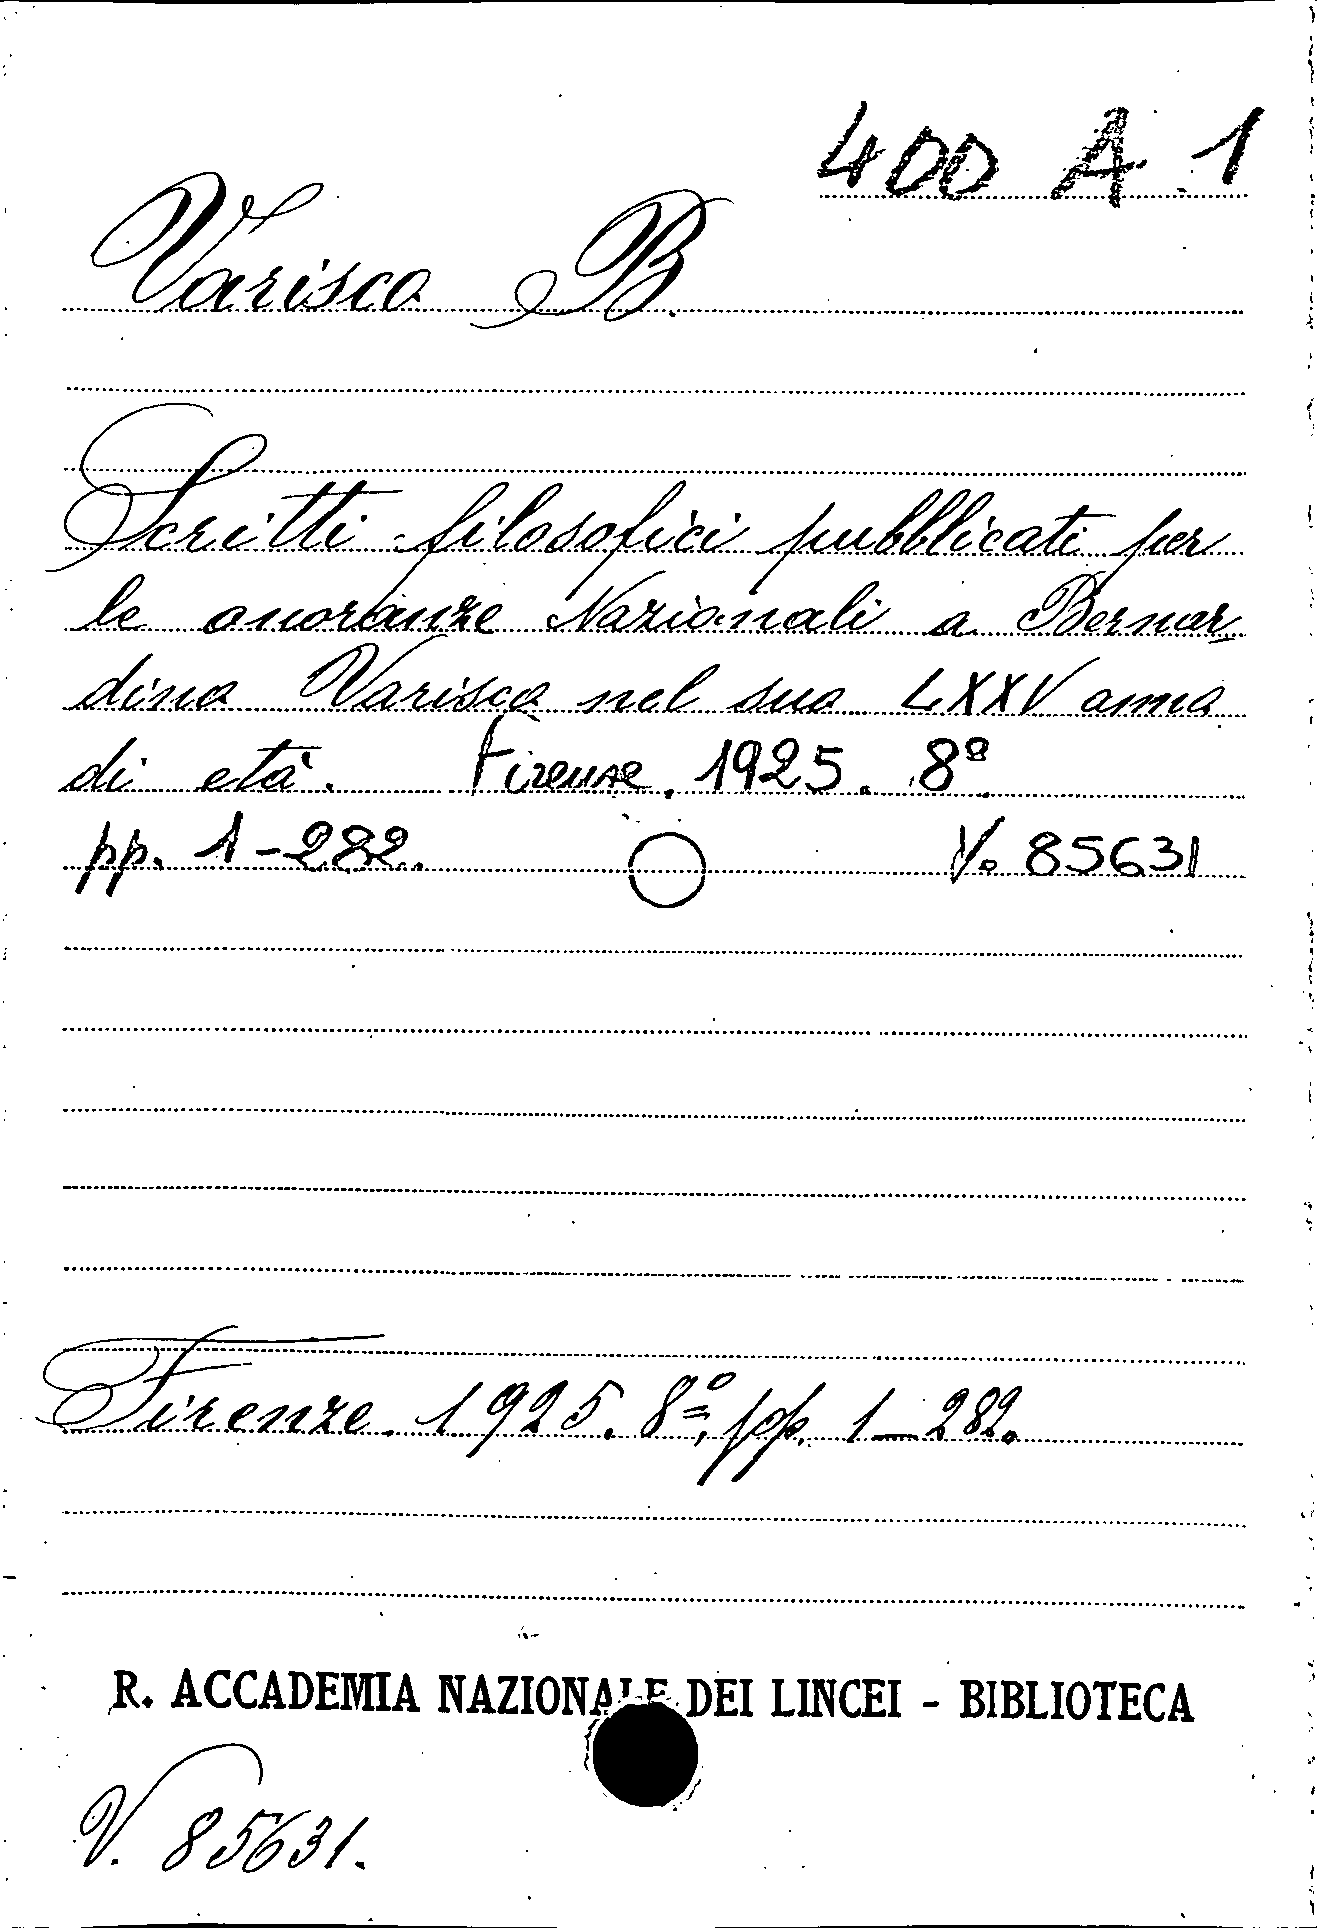 400 A 1
Varisco B.
Scritti filosofici pubblicati per
le onoranze Nazionali a Bernar
dino Varisco nel suo LXXV anno
di età. Firenze. 1925. 8º
pp. 1-282. V. 85631
Firenze. 1925. 8º, pp. 1-282.
R. ACCADEMIA NAZIONALE DEI LINCEI - BIBLIOTECA
V. 85631.